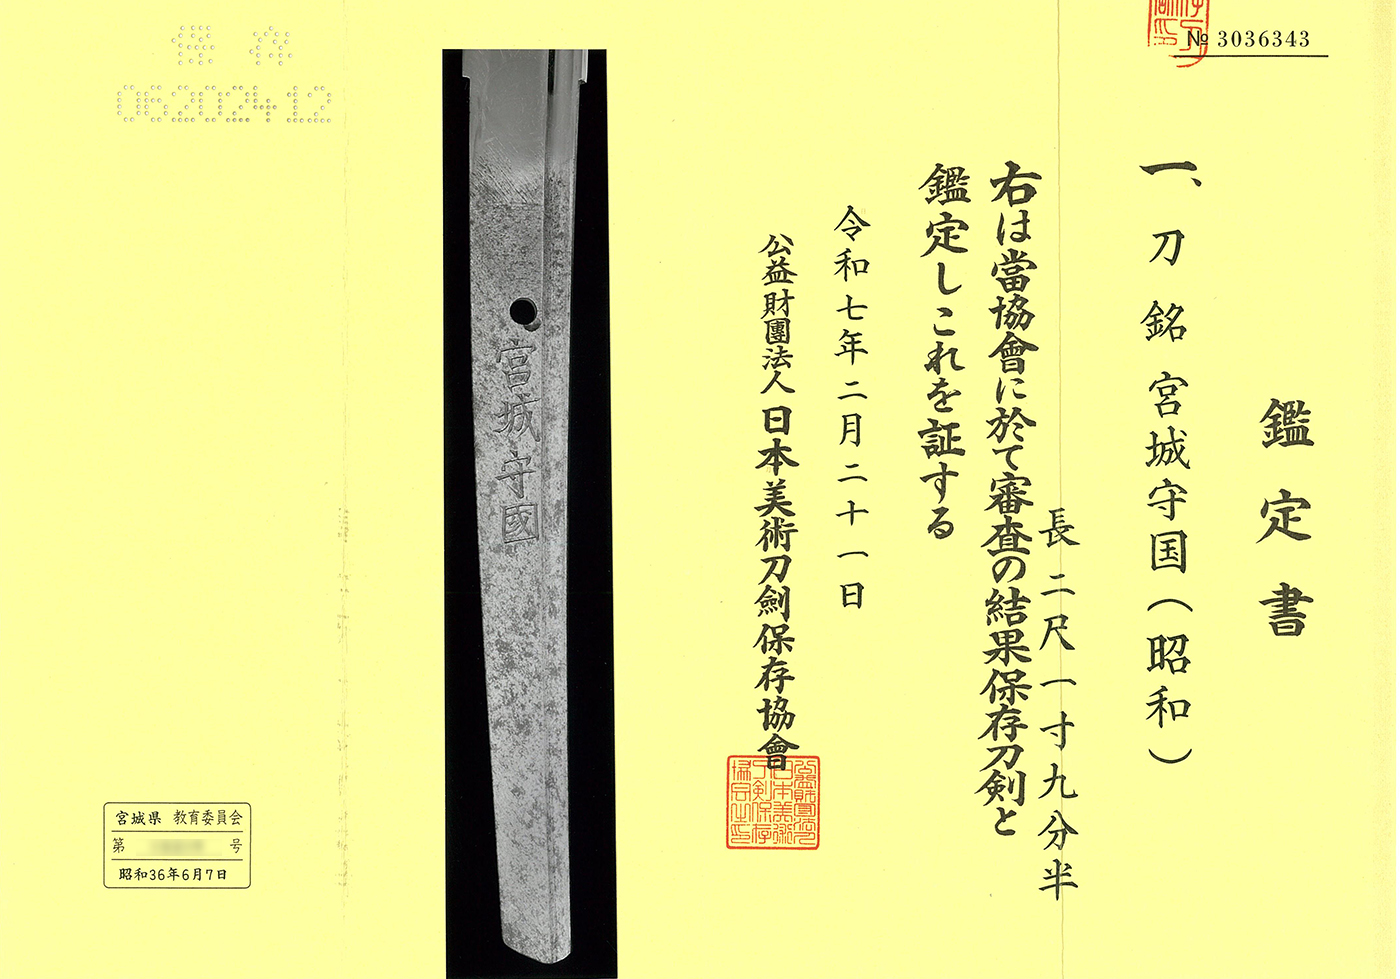 № 3036343
鑑定書
一、刀 銘 宮城守国（昭和）
長 二尺一寸九分半
右は當協會に於て審査の結果保存刀剣と
鑑定しこれを証する
令和七年二月二十一日
公益財團法人 日本美術刀劍保存協會
宮城守國
保存
06202412
宮城県 教育委員会
第 号
昭和36年6月7日